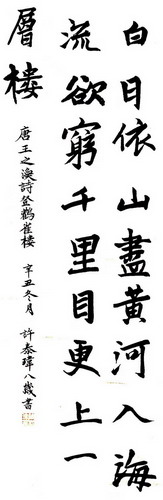 白日依山盡黃河入海
流欲窮千里目更上一
層樓
唐王之渙詩登鸛雀樓 辛丑冬月 許泰瑋八歲書